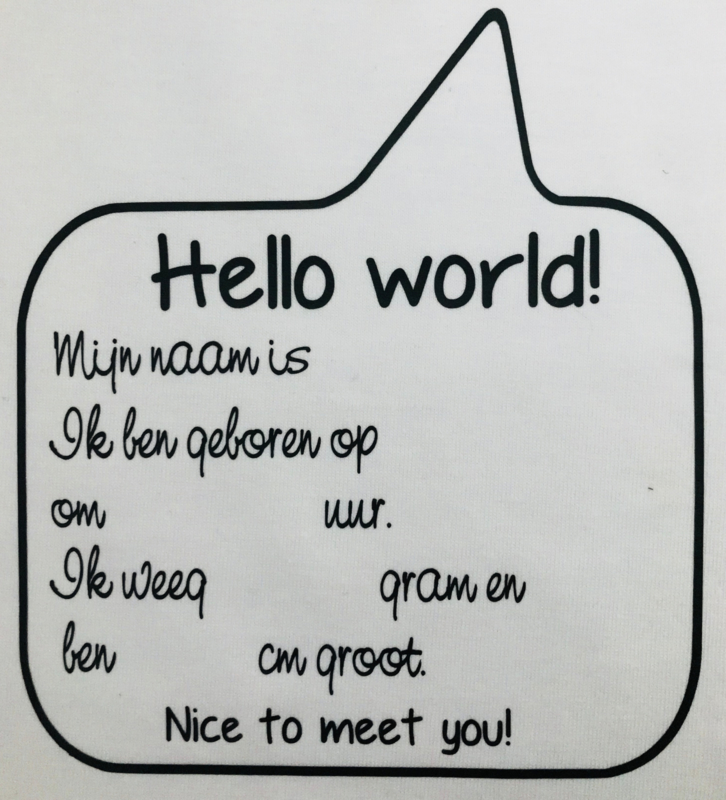 Hello world!
Mijn naam is
Ik ben geboren op
om uur.
Ik weeg gram en
ben cm groot.
Nice to meet you!